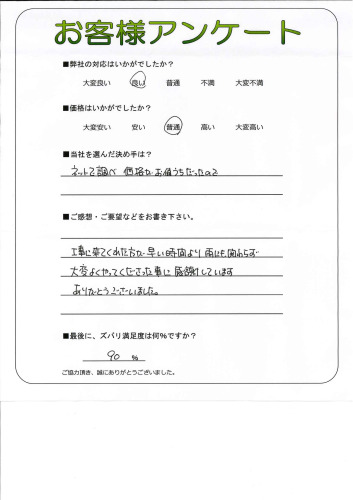 お客様アンケート
■弊社の対応はいかがでしたか?
大変良い 良い 普通 不満 大変不満
■価格はいかがでしたか?
大変安い 安い 普通 高い 大変高い
■当社を選んだ決め手は?
ネットで調べ 価格がお値うちだったので
■ご感想・ご要望などをお書き下さい。
工事に来てくれた方が 早い時間より 雨にも関わらず
大変よくやってくださった事に 感謝しています
ありがとうございました。
■最後に、ズバリ満足度は何%ですか?
90 %
ご協力頂き、誠にありがとうございました。